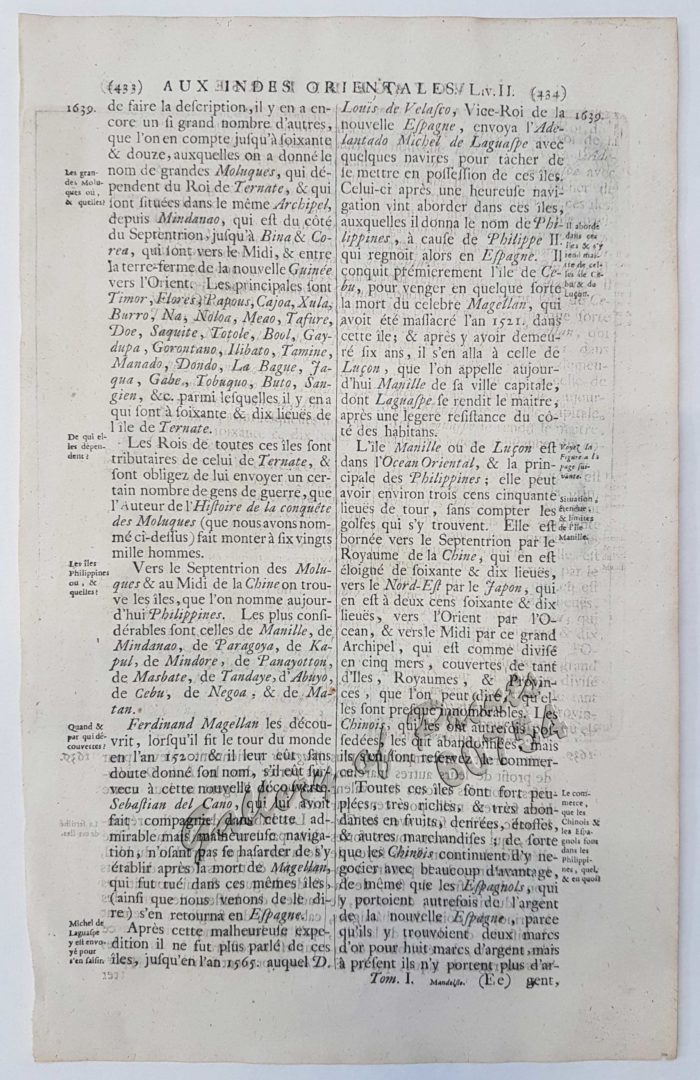 (433) AUX INDES ORIENTALES. Liv. II. (434)
1639.
de faire la deſcription, il y en a en-
core un ſi grand nombre d'autres,
que l'on en compte juſqu'à ſoixante
& douze, auxquelles on a donné le
Les gran-
des Molu-
ques où,
& quelles?
nom de grandes Moluques, qui dé-
pendent du Roi de Ternate, & qui
ſont ſituées dans le même Archipel,
depuis Mindanao, qui eſt du côté
du Septentrion, juſqu'à Bina & Co-
rea, qui ſont vers le Midi, & entre
la terre-ferme de la nouvelle Guinée
vers l'Orient. Les principales ſont
Timor, Flores, Papous, Cajoa, Xula,
Burro, Na, Noloa, Meao, Tafure,
Doe, Saquite, Totole, Bool, Gay-
dupa, Gorontano, Ilibato, Tamine,
Manado, Dondo, La Bague, Ja-
qua, Gabe, Tobuquo, Buto, San-
gien, &c. parmi leſquelles il y en a
qui ſont à ſoixante & dix lieuës de
l'île de Ternate.
De qui el-
les dépen-
dent?
Les Rois de toutes ces îles ſont
tributaires de celui de Ternate, &
ſont obligez de lui envoyer un cer-
tain nombre de gens de guerre, que
l'Auteur de l'Hiſtoire de la conquête
des Moluques (que nous avons nom-
mé ci-deſſus) fait monter à ſix vingts
mille hommes.
Les îles
Philippines
où, &
quelles?
Vers le Septentrion des Molu-
ques & au Midi de la Chine on trou-
ve les îles, que l'on nomme aujour-
d'hui Philippines. Les plus conſi-
dérables ſont celles de Manille, de
Mindanao, de Paragoya, de Ka-
pul, de Mindore, de Panayotton,
de Masbate, de Tandaye, d'Abuyo,
de Cebu, de Negoa, & de Ma-
tan.
Quand &
par qui dé-
couvertes?
Ferdinand Magellan les décou-
vrit, lorſqu'il fit le tour du monde
en l'an 1520. & il leur eût ſans
doute donné ſon nom, s'il eût ſur-
vecu à cette nouvelle découverte.
Sebaſtian del Cano, qui lui avoit
fait compagnie dans cette ad-
mirable mais malheureuſe naviga-
tion, n'oſant pas ſe haſarder de s'y
établir après la mort de Magellan,
qui fut tué dans ces mêmes îles,
(ainſi que nous venons de le di-
re) s'en retourna en Eſpagne.
Michel de
Laguaſpe
y eſt envo-
yé pour
s'en ſaiſir.
Après cette malheureuſe expe-
dition il ne fut plus parlé de ces
îles, juſqu'en l'an 1565. auquel D.
Louis de Velaſco, Vice-Roi de la
1639.
nouvelle Eſpagne, envoya l'Ade-
lantado Michel de Laguaſpe avec
quelques navires pour tâcher de
ſe mettre en poſſeſſion de ces îles.
Celui-ci après une heureuſe navi-
gation vint aborder dans ces îles,
auxquelles il donna le nom de Phi-
lippines, à cauſe de Philippe II.
qui regnoit alors en Eſpagne. Il
Il aborde
dans ces
îles & s'y
rend maî-
tre de cel-
les de Ce-
bu & de
Luçon.
conquit prémierement l'île de Ce-
bu, pour venger en quelque ſorte
la mort du celebre Magellan, qui
avoit été maſſacré l'an 1521. dans
cette île; & après y avoir demeu-
ré ſix ans, il s'en alla à celle de
Luçon, que l'on appelle aujour-
d'hui Manille de ſa ville capitale,
dont Laguaſpe ſe rendit le maitre,
après une légere reſiſtance du cô-
té des habitans.
Voyez la
Figure à la
page ſui-
vante.
L'île Manille ou de Luçon eſt
dans l'Ocean Oriental, & la prin-
cipale des Philippines; elle peut
avoir environ trois cens cinquante
lieuës de tour, ſans compter les
golfes qui s'y trouvent. Elle eſt
Situation,
étenduë,
& limites
de l'île
Manille.
bornée vers le Septentrion par le
Royaume de la Chine, qui en eſt
éloigné de ſoixante & dix lieuës,
vers le Nord-Eſt par le Japon, qui
en eſt à deux cens ſoixante & dix
lieuës, vers l'Orient par l'O-
cean, & vers le Midi par ce grand
Archipel, qui eſt comme diviſé
en cinq mers, couvertes de tant
d'Iles, Royaumes, & Provin-
ces, que l'on peut dire, qu'el-
les ſont preſque innombrables. Les
Chinois, qui les ont autrefois poſ-
ſedées, les ont abandonnées, mais
ils s'en ſont reſervé le commer-
ce.
Toutes ces îles ſont fort peu-
plées, très riches, & très abon-
dantes en fruits, denrées, étoffes,
& autres marchandiſes; de ſorte
Le com-
merce,
que les
Chinois &
les Eſpa-
gnols font
dans les
Philippi-
nes, quel,
& en quoi?
que les Chinois continuent d'y ne-
gocier avec beaucoup d'avantage,
de même que les Eſpagnols, qui
y portoient autrefois de l'argent
de la nouvelle Eſpagne, parce
qu'ils y trouvoient deux marcs
d'or pour huit marcs d'argent, mais
à préſent ils n'y portent plus d'ar-
Tom. I. Mandelſle. (Ee) gent,
Gallery of Prints